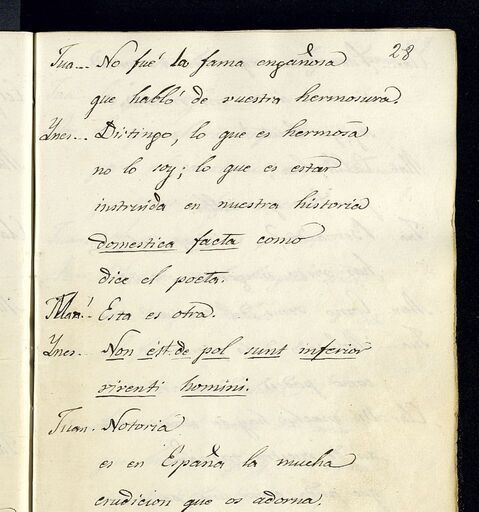 28
Jua... No fué la fama engañosa
que habló de vuestra hermosura.
Ynes... Distingo, lo que es hermosa
no lo soy; lo que es estar
instruida en nuestra historia
domestica facta como
dice el poeta.
Mar! Esta es otra.
Ynes. Non est de pol sunt inferior
virenti homini.
Juan. Notoria
es en España la mucha
erudicion que os adorna.